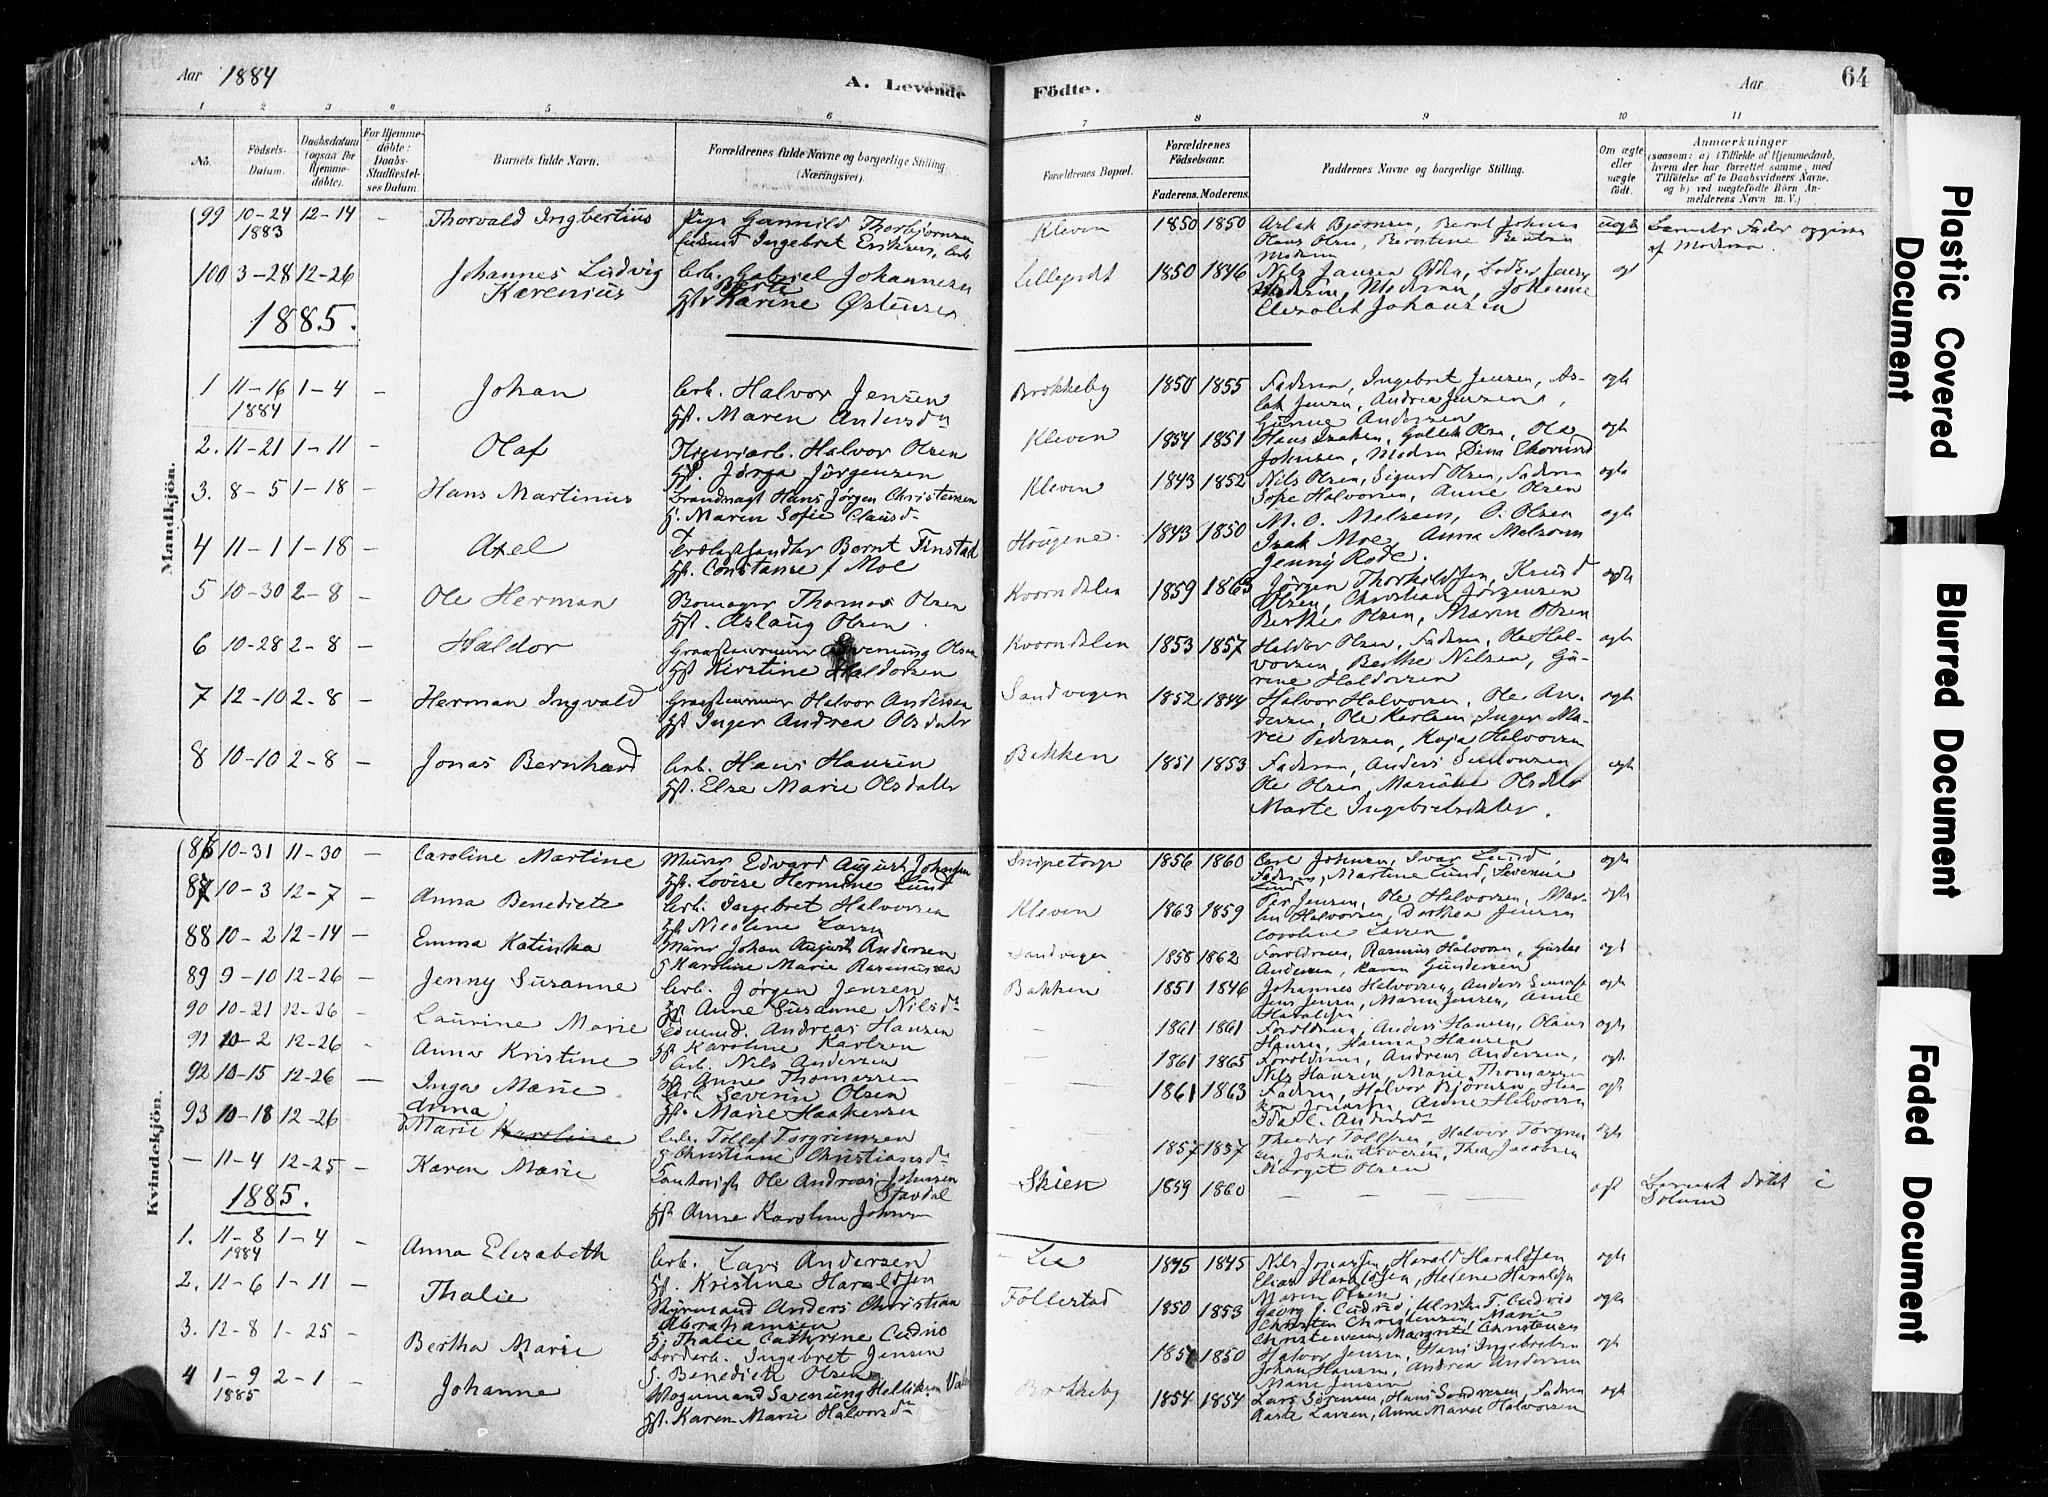 Aar 1884
A. Levende
Fødte.
Aar
64
1 2 3 4 5 6
7 8 9 10 11
No.
Fødsels-Datum.
Daabsdatum (ogsaa for Hjemmedøbte).
For Hjemmedøbte: Daabs-Stadfæstelses Datum.
Barnets fulde Navn.
Forældrenes fulde Navne og borgerlige Stilling. (Næringsvei).
Forældrenes Bopæl.
Forældrenes Fødselsaar.
Faderens. Moderens.
Faddernes Navne og borgerlige Stilling.
Om ægte eller uægte født.
Anmærkninger
(saasom: a) i Tilfælde af Hjemmedaab, hvem der har forrettet samme, med Tilføielse af to Daabsvidners Navne. og b) ved uægtefødte Børn Anmelderens Navn m. V.)
Mandkjøn.
99 10-24 12-14 - Thorvald Ingbertius Pige Gunnild Thorbjørnsen Kleven 1850 1850 Aslak Bjørnsen, Bernt Johnsen uægte Barnets Fader opgiven
1883 Ingebret Eriksen, Arb Olaus Olsen, Berntine Bentsen af Moderen
Moderen
100 3-28 12-26 Johannes Ludvig Arb. Gabriel Johannesen Lillegrdt 1850 1846 Nils Jansen ægt
Karenius Berte Moderen, Johanne
1885. Karine Østensen Elisabet Johansen
1 11-16 1-4 - Johan Arb. Halvor Jensen Brokkeby 1850 1855 Faderen, Ingebret Jensen, As- ægte
1884 Hst. Maren Andersdr lak Jensen, Andrea Jensen,
Gunne Andersen
2. 11-21 1-11 - Olaf Halvor Olsen Kleven 1854 1851 Hans Isaksen, Gullik Olsen, Ole ægte
Hst. Jørga Jørgensen Johnsen, Modren, Dina
3. 8-5 1-18 - Hans Martinus Brandvagt Hans Jørgen Christensen Kleven 1843 1852 Nils Olsen, Sigurd Olsen, Faderen ægte
H. Maren Sofie Clausdr Sofie Halvorsen, Anne Olsen
4 11-1 1-18 - Axel Bernt Tinstad Hougene. 1843 1850 M. O. Melseen, O. Olsen ægte
Hst. Constanse f Moe Isak Moe, Anna Melsom
Jenny Rode.
5 10-30 2-8 - Ole Herman Bomager Thomas Olsen Kvorndalen 1859 1863 Jørgen Thorkildsen, Knud ægte
Hst. Aslaug Olsen Olsen, Christian Jørgensen
Berthe Olsen, Maren Olsen
6 10-28 2-8 - Haldor Severing Olsen Kvorndalen 1853 1857 Haldor Olsen, Faderen, Ole Hal- ægte
Hst Kirstine Haldorsen vorsen, Berthe Nilsen, Gu-
rine Haldorsen
7 12-10 2-8 - Herman Ingvald Halvor Andersen Sandvigen 1852 1844 Halvor Halvorsen, Ole An- ægte
Hst Inger Andrea Olsdatr dersen, Ole Karlsen, Inger Ma-
rie Pedersen, Kaja Halvorsen
8 10-10 2-8 - Jonas Bernhard Arb. Hans Hansen Bakken 1851 1853 Faderen, Anders Simonsen ægte
Hst. Else Marie Olsdatr Ole Olsen, Mariane Olsdatr
Marte Ingebretsdatter.
Kvindekjøn.
86 10-31 11-30 - Caroline Martine Murer Edvard August Johansen Snipetorp 1856 1860 Carl Johnsen, Ivar Lund, ægte
Hst. Lovise Hermine Lund Faderen, Martine Lund, Severine
Lund
87 10-3 12-7 - Anna Benedicte Arb. Ingebret Halvorsen Kleven 1863 1859 Per Jensen, Ole Halvorsen, Mar- ægte
Hst Larsen Halvorsen, Dorthea Jensen
Caroline Larsen
88 10-2 12-14 - Emma Katinka Murer Johan August Andersen Sandvigen 1858 1862 Foreldrene, Rasmus Halvorsen, ægt
H Karoline Marie Rasmussen Andersen, Karen Gundersen
89 9-10 12-26 - Jenny Susanne Arb. Jørgen Jensen Bakken 1851 1846 Johannes Halvorsen, Anders ægte
Hst Anne Susanne Nilsdr Jens Jensen, Maren Jensen, Anne
90 10-21 12-26 - Laurine Marie Andreas Hansen - 1861 1861 Foreldrene, Anders Hansen, Olaus ægte
Hst Karoline Karlsen Hansen, Hanna Hansen
91 10-2 12-26 - Anna Kristine Arb. Nils Andersen - 1861 1865 Foreldrene, Andreas Andersen, ægt.
Hst Anne Thomassen Nils Hansen, Marie Thomassen
92 10-15 12-26 - Inga Marie Arb Severin Olsen - 1861 1863 Faderen, Halvor Bjørnsen, Haa- ægte
Hst. Marie Haakensen Anne Halvorsen
93 10-18 12-26 Anna Marie Karoline Arb. Tollef Torgrimsen - 1857 1857 Theodor Tollefsen, Halvor Torgrim ægte
H Christiane Christiansdr Thea Jacobsen
Margit Olsen
- 11-4 12-25 - Karen Marie Ole Andreas Johnsen Skien 1859 1860 - - - - ægt Barnet døbt i
Stavdal Solum
1885. Hst Anne Karoline Johnsen
1. 11-8 1-4 - Anna Elizabeth Arb. Lars Andersen Lie 1845 1845 Nils Jonassen, Harald Haraldsen ægte
1884 Hst. Kristine Haraldsen Elias Haraldsen, Helene Haraldsen
Maren Olsen
2. 11-6 1-11 - Thalie Styrmand Anders Christian Follestad 1850 1853 Georg J. Cudrio, Ulrikke T. Cudrio ægte
Abrahamsen Christen Christensen, Marie
H. Thalie Cathrine Cudrio Christensen, Margrete Christensen
3. 12-8 1-25 - Bertha Marie Jordarb. Ingebret Jensen 1857 1850 Halvor Jensen, Hans Ingebretsen ægt
H. Benedicte Olsen Johan Hansen, Andrea Andersen
Marie Jensen
4 1-9 2-1 - Johanne Vognmand Severing Helliksen Brokkeby 1854 1854 Lars Sørensen, Hans Sondresen, Faderen ægte
1885 Hst. Karen Marie Halvorsdr Aaste Larsen, Anne Marie Halvorsen
Plastic Covered Document
Blurred Document
Faded Document